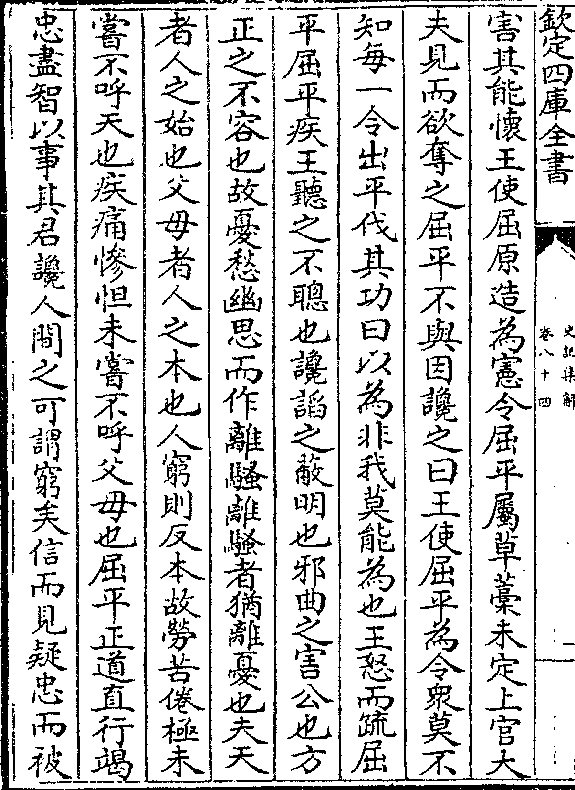 欽定四庫全書
史記集解
卷八十四
害其能懷王使屈原造為憲令屈平屬草藁未定上官大
夫見而欲奪之屈平不與因讒之曰王使屈平為令衆莫不
知每一令出平伐其功曰以為非我莫能為也王怒而疏屈
平屈平疾王聽之不聰也讒謟之蔽明也邪曲之害公也方
正之不容也故憂愁幽思而作離騷離騷者猶離憂也夫天
者人之始也父母者人之本也人窮則反本故勞苦倦極未
嘗不呼天也疾痛慘怛未嘗不呼父母也屈平正道直行竭
忠盡智以事其君讒人間之可謂窮矣信而見疑忠而被